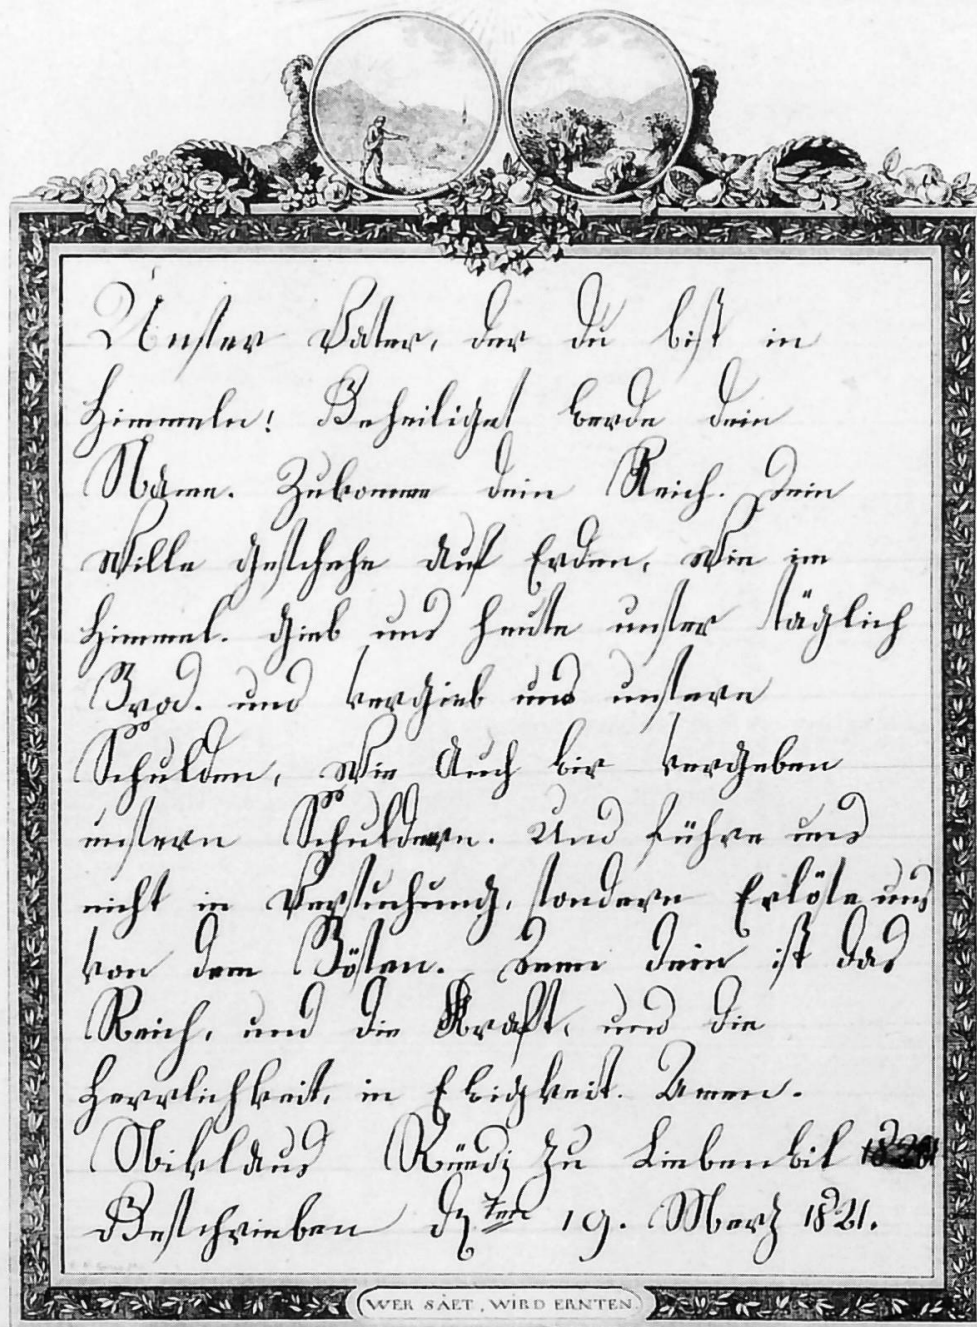 Unser Vater, der du bist in
Himmeln! Geheiliget werde dein
Name. Zukomme dein Reich. Dein
Wille geschehe auf Erden, wie im
Himmel. Gieb uns heute unser täglich
Brod. und vergieb uns unsere
Schulden, wie auch wir vergeben
unsern Schuldern. Und führe uns
nicht in Versuchung, sondern Erlöse uns
von dem Bösen. Denn dein ist das
Reich, und die Kraft, und die
Herrlichkeit, in Ewigkeit. Amen.
Niklaus Rüedi zu Liebenwil
Geschrieben 19. Merz 1821.
WER SÄET, WIRD ERNTEN.